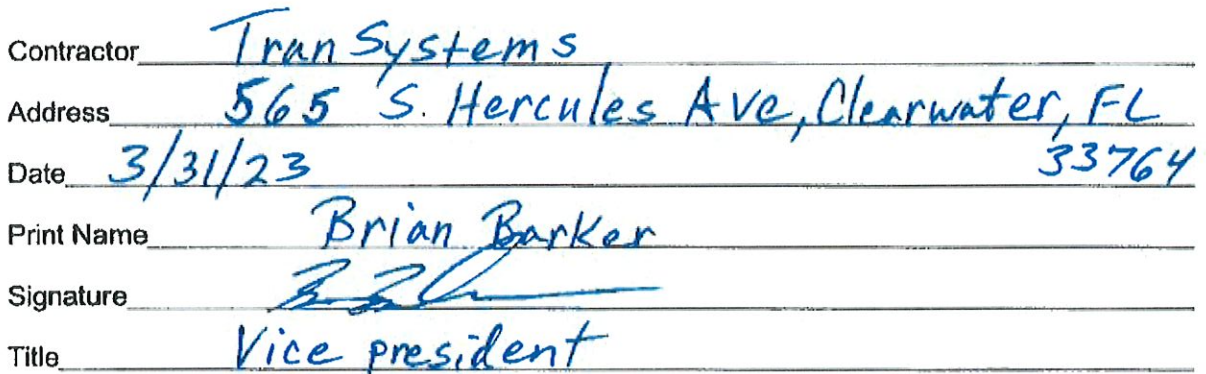 Contractor TranSystems
Address 565 S. Hercules Ave, Clearwater, FL
33764
Date 3/31/23
Print Name Brian Barker
Signature
Title Vice president